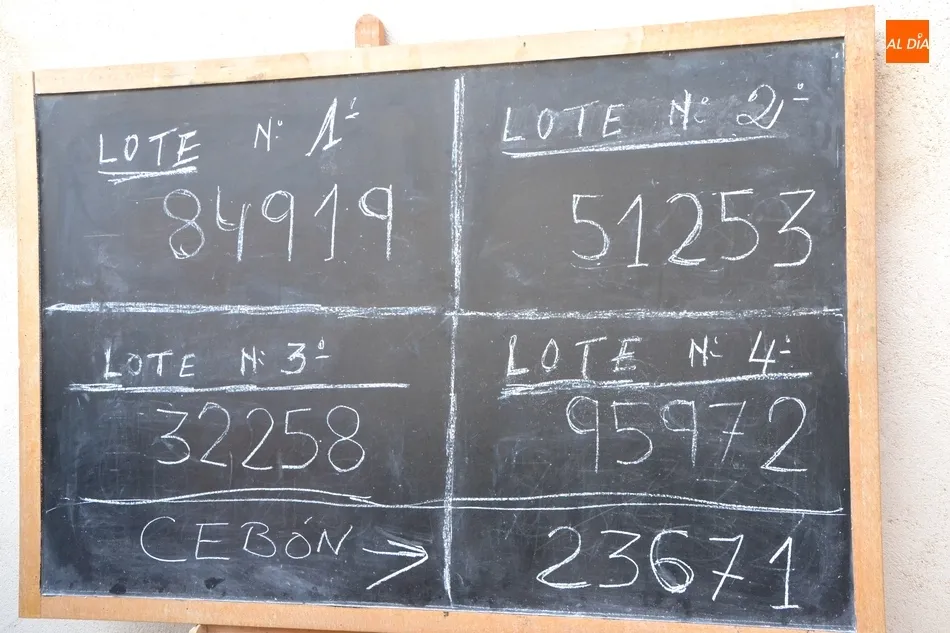 LOTE Nº 1º
84919
LOTE Nº 2º
51253
LOTE Nº 3º
32258
LOTE Nº 4º
95972
CEBÓN → 23671
AL DÍA